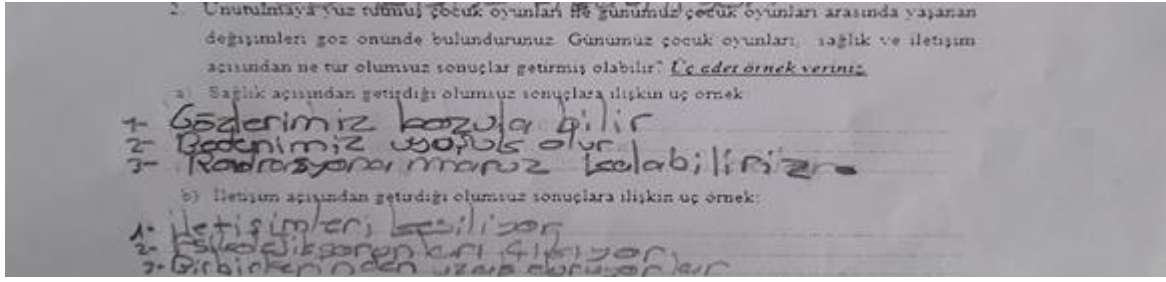 2. Unutulmaya yüz tutmuş çocuk oyunları ile günümüz çocuk oyunları arasında yaşanan
değişimleri göz önünde bulundurunuz. Günümüz çocuk oyunları, sağlık ve iletişim
açısından ne tür olumsuz sonuçlar getirmiş olabilir? Üç adet örnek veriniz.
a) Sağlık açısından getirdiği olumsuz sonuçlara ilişkin üç örnek
1- Gözlerimiz bozula bilir
2- Bedenimiz uyuşuk olur
3- Radrasyona maruz kalabiliriz.
b) İletişim açısından getirdiği olumsuz sonuçlara ilişkin üç örnek:
1- iletişimleri kesiliyor
2- çıkıyor
3- Birbirlerinden uzak duruyorlar